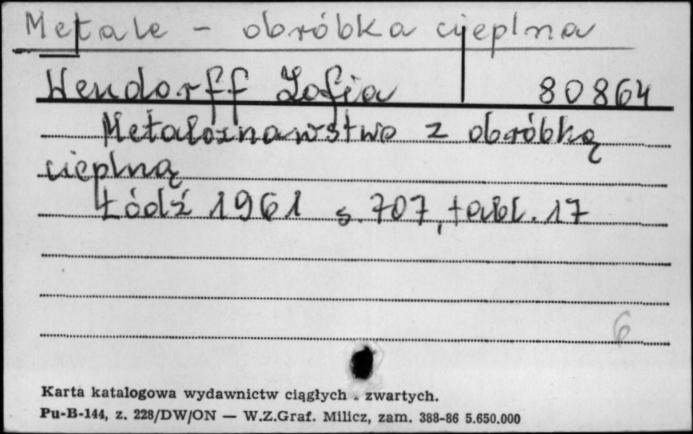 Metale - obróbka cieplna
Wendorff Zofia 80864
Metaloznawstwo z obróbką
cieplną
Łódź 1961 s. 707, tabl. 17
6
Karta katalogowa wydawnictw ciągłych . zwartych.
Pu-B-144, z. 228/DW/ON — W.Z.Graf. Milicz, zam. 388-86 5.650.000